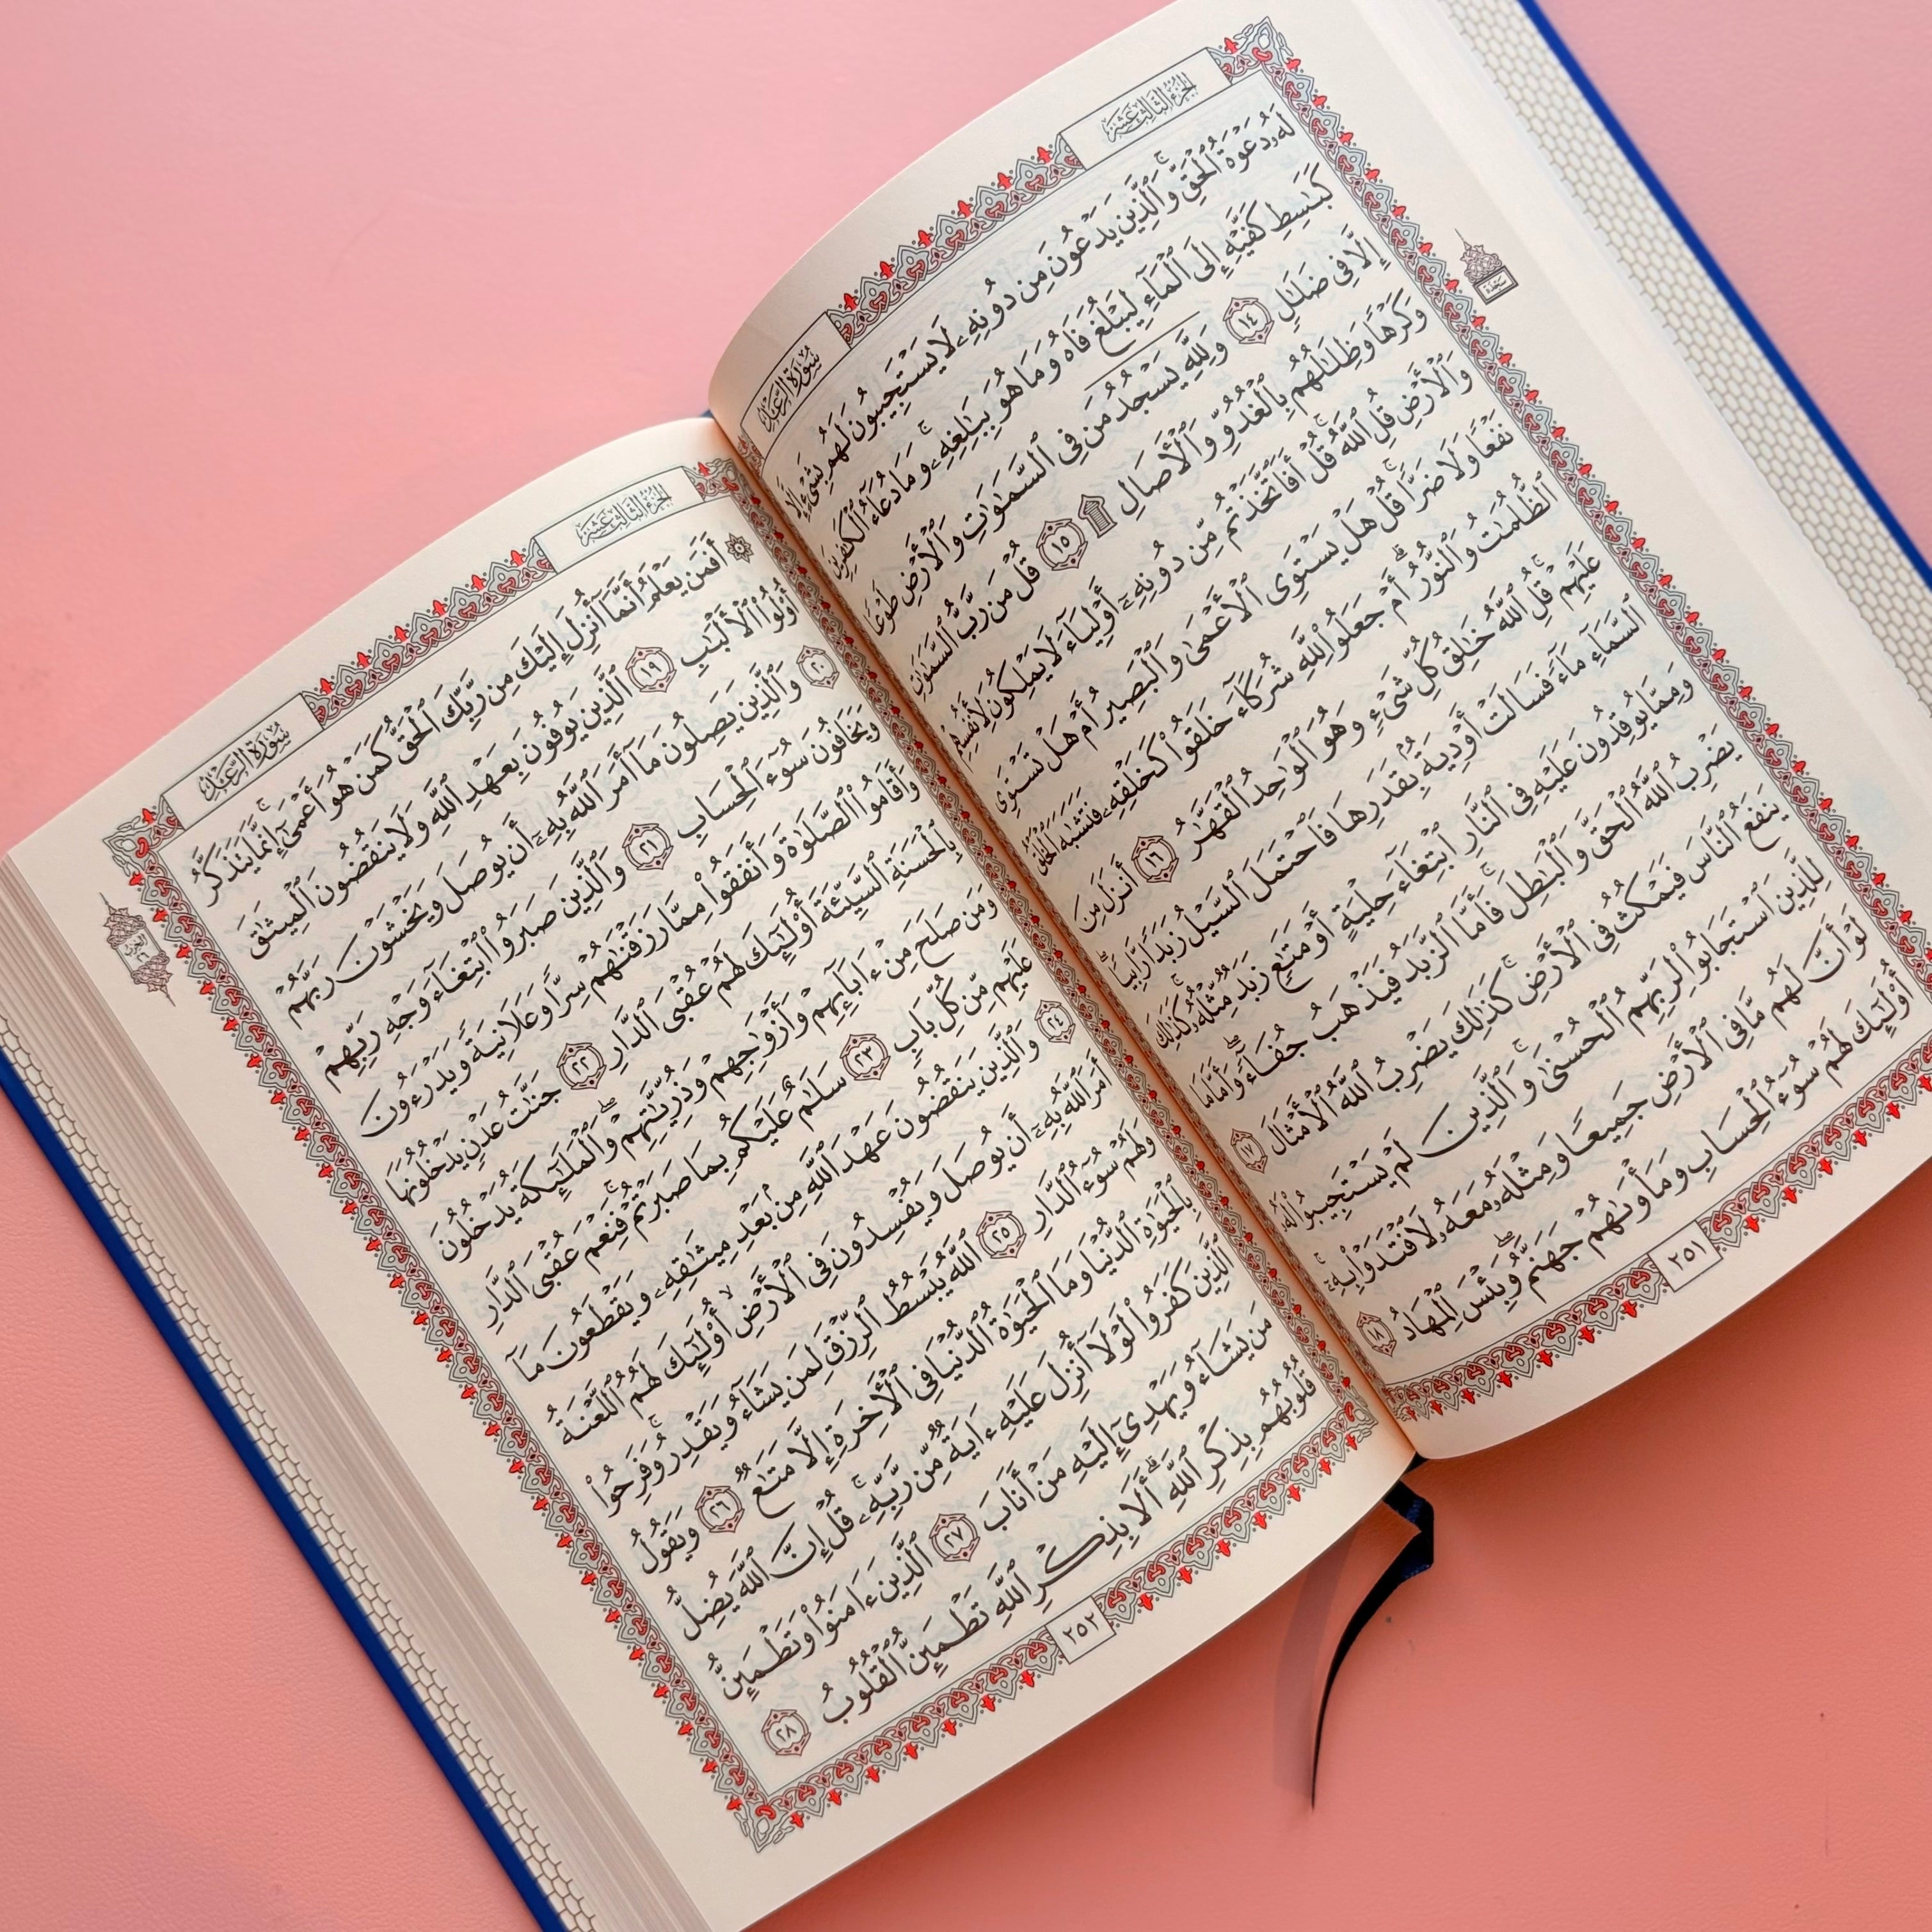 الجزء الثالث عشر
سورة الرعد
لَهُۥ دَعْوَةُ ٱلْحَقِّ ۚ وَٱلَّذِينَ يَدْعُونَ مِن دُونِهِۦ لَا يَسْتَجِيبُونَ لَهُم بِشَىْءٍ إِلَّا
كَبَٰسِطِ كَفَّيْهِ إِلَى ٱلْمَآءِ لِيَبْلُغَ فَاهُ وَمَا هُوَ بِبَٰلِغِهِۦ ۚ وَمَا دُعَآءُ ٱلْكَٰفِرِينَ
إِلَّا فِى ضَلَٰلٍ ١٤ وَلِلَّهِ يَسْجُدُ مَن فِى ٱلسَّمَٰوَٰتِ وَٱلْأَرْضِ طَوْعًا
سجدة
وَكَرْهًا وَظِلَٰلُهُم بِٱلْغُدُوِّ وَٱلْءَاصَالِ ۩ ١٥ قُلْ مَن رَّبُّ ٱلسَّمَٰوَٰتِ
وَٱلْأَرْضِ قُلِ ٱللَّهُ ۚ قُلْ أَفَٱتَّخَذْتُم مِّن دُونِهِۦٓ أَوْلِيَآءَ لَا يَمْلِكُونَ لِأَنفُسِهِمْ
نَفْعًا وَلَا ضَرًّا ۚ قُلْ هَلْ يَسْتَوِى ٱلْأَعْمَىٰ وَٱلْبَصِيرُ أَمْ هَلْ تَسْتَوِى
ٱلظُّلُمَٰتُ وَٱلنُّورُ ۗ أَمْ جَعَلُوا۟ لِلَّهِ شُرَكَآءَ خَلَقُوا۟ كَخَلْقِهِۦ فَتَشَٰبَهَ ٱلْخَلْقُ
عَلَيْهِمْ ۚ قُلِ ٱللَّهُ خَٰلِقُ كُلِّ شَىْءٍ وَهُوَ ٱلْوَٰحِدُ ٱلْقَهَّٰرُ ١٦ أَنزَلَ مِنَ
ٱلسَّمَآءِ مَآءً فَسَالَتْ أَوْدِيَةٌۢ بِقَدَرِهَا فَٱحْتَمَلَ ٱلسَّيْلُ زَبَدًا رَّابِيًا ۚ
وَمِمَّا يُوقِدُونَ عَلَيْهِ فِى ٱلنَّارِ ٱبْتِغَآءَ حِلْيَةٍ أَوْ مَتَٰعٍ زَبَدٌ مِّثْلُهُۥ ۚ كَذَٰلِكَ
يَضْرِبُ ٱللَّهُ ٱلْحَقَّ وَٱلْبَٰطِلَ ۚ فَأَمَّا ٱلزَّبَدُ فَيَذْهَبُ جُفَآءً ۖ وَأَمَّا مَا
يَنفَعُ ٱلنَّاسَ فَيَمْكُثُ فِى ٱلْأَرْضِ ۚ كَذَٰلِكَ يَضْرِبُ ٱللَّهُ ٱلْأَمْثَالَ ١٧
لِلَّذِينَ ٱسْتَجَابُوا۟ لِرَبِّهِمُ ٱلْحُسْنَىٰ ۚ وَٱلَّذِينَ لَمْ يَسْتَجِيبُوا۟ لَهُۥ
لَوْ أَنَّ لَهُم مَّا فِى ٱلْأَرْضِ جَمِيعًا وَمِثْلَهُۥ مَعَهُۥ لَٱفْتَدَوْا۟ بِهِۦٓ ۚ
أُو۟لَٰٓئِكَ لَهُمْ سُوٓءُ ٱلْحِسَابِ وَمَأْوَىٰهُمْ جَهَنَّمُ ۖ وَبِئْسَ ٱلْمِهَادُ ١٨
٢٥١
الجزء الثالث عشر
سورة الرعد
۞ أَفَمَن يَعْلَمُ أَنَّمَآ أُنزِلَ إِلَيْكَ مِن رَّبِّكَ ٱلْحَقُّ كَمَنْ هُوَ أَعْمَىٰٓ ۚ إِنَّمَا يَتَذَكَّرُ
أُو۟لُوا۟ ٱلْأَلْبَٰبِ ١٩ ٱلَّذِينَ يُوفُونَ بِعَهْدِ ٱللَّهِ وَلَا يَنقُضُونَ ٱلْمِيثَٰقَ
الحزب ٢٦
٢٠ وَٱلَّذِينَ يَصِلُونَ مَآ أَمَرَ ٱللَّهُ بِهِۦٓ أَن يُوصَلَ وَيَخْشَوْنَ رَبَّهُمْ
وَيَخَافُونَ سُوٓءَ ٱلْحِسَابِ ٢١ وَٱلَّذِينَ صَبَرُوا۟ ٱبْتِغَآءَ وَجْهِ رَبِّهِمْ
وَأَقَامُوا۟ ٱلصَّلَوٰةَ وَأَنفَقُوا۟ مِمَّا رَزَقْنَٰهُمْ سِرًّا وَعَلَانِيَةً وَيَدْرَءُونَ
بِٱلْحَسَنَةِ ٱلسَّيِّئَةَ أُو۟لَٰٓئِكَ لَهُمْ عُقْبَى ٱلدَّارِ ٢٢ جَنَّٰتُ عَدْنٍ يَدْخُلُونَهَا
وَمَن صَلَحَ مِنْ ءَابَآئِهِمْ وَأَزْوَٰجِهِمْ وَذُرِّيَّٰتِهِمْ ۖ وَٱلْمَلَٰٓئِكَةُ يَدْخُلُونَ
عَلَيْهِم مِّن كُلِّ بَابٍ ٢٣ سَلَٰمٌ عَلَيْكُم بِمَا صَبَرْتُمْ ۚ فَنِعْمَ عُقْبَى ٱلدَّارِ
٢٤ وَٱلَّذِينَ يَنقُضُونَ عَهْدَ ٱللَّهِ مِنۢ بَعْدِ مِيثَٰقِهِۦ وَيَقْطَعُونَ مَآ
أَمَرَ ٱللَّهُ بِهِۦٓ أَن يُوصَلَ وَيُفْسِدُونَ فِى ٱلْأَرْضِ ۙ أُو۟لَٰٓئِكَ لَهُمُ ٱللَّعْنَةُ
وَلَهُمْ سُوٓءُ ٱلدَّارِ ٢٥ ٱللَّهُ يَبْسُطُ ٱلرِّزْقَ لِمَن يَشَآءُ وَيَقْدِرُ ۚ وَفَرِحُوا۟
بِٱلْحَيَوٰةِ ٱلدُّنْيَا وَمَا ٱلْحَيَوٰةُ ٱلدُّنْيَا فِى ٱلْءَاخِرَةِ إِلَّا مَتَٰعٌ ٢٦ وَيَقُولُ
ٱلَّذِينَ كَفَرُوا۟ لَوْلَآ أُنزِلَ عَلَيْهِ ءَايَةٌ مِّن رَّبِّهِۦ ۗ قُلْ إِنَّ ٱللَّهَ يُضِلُّ
مَن يَشَآءُ وَيَهْدِىٓ إِلَيْهِ مَنْ أَنَابَ ٢٧ ٱلَّذِينَ ءَامَنُوا۟ وَتَطْمَئِنُّ
قُلُوبُهُم بِذِكْرِ ٱللَّهِ ۗ أَلَا بِذِكْرِ ٱللَّهِ تَطْمَئِنُّ ٱلْقُلُوبُ ٢٨
٢٥٢